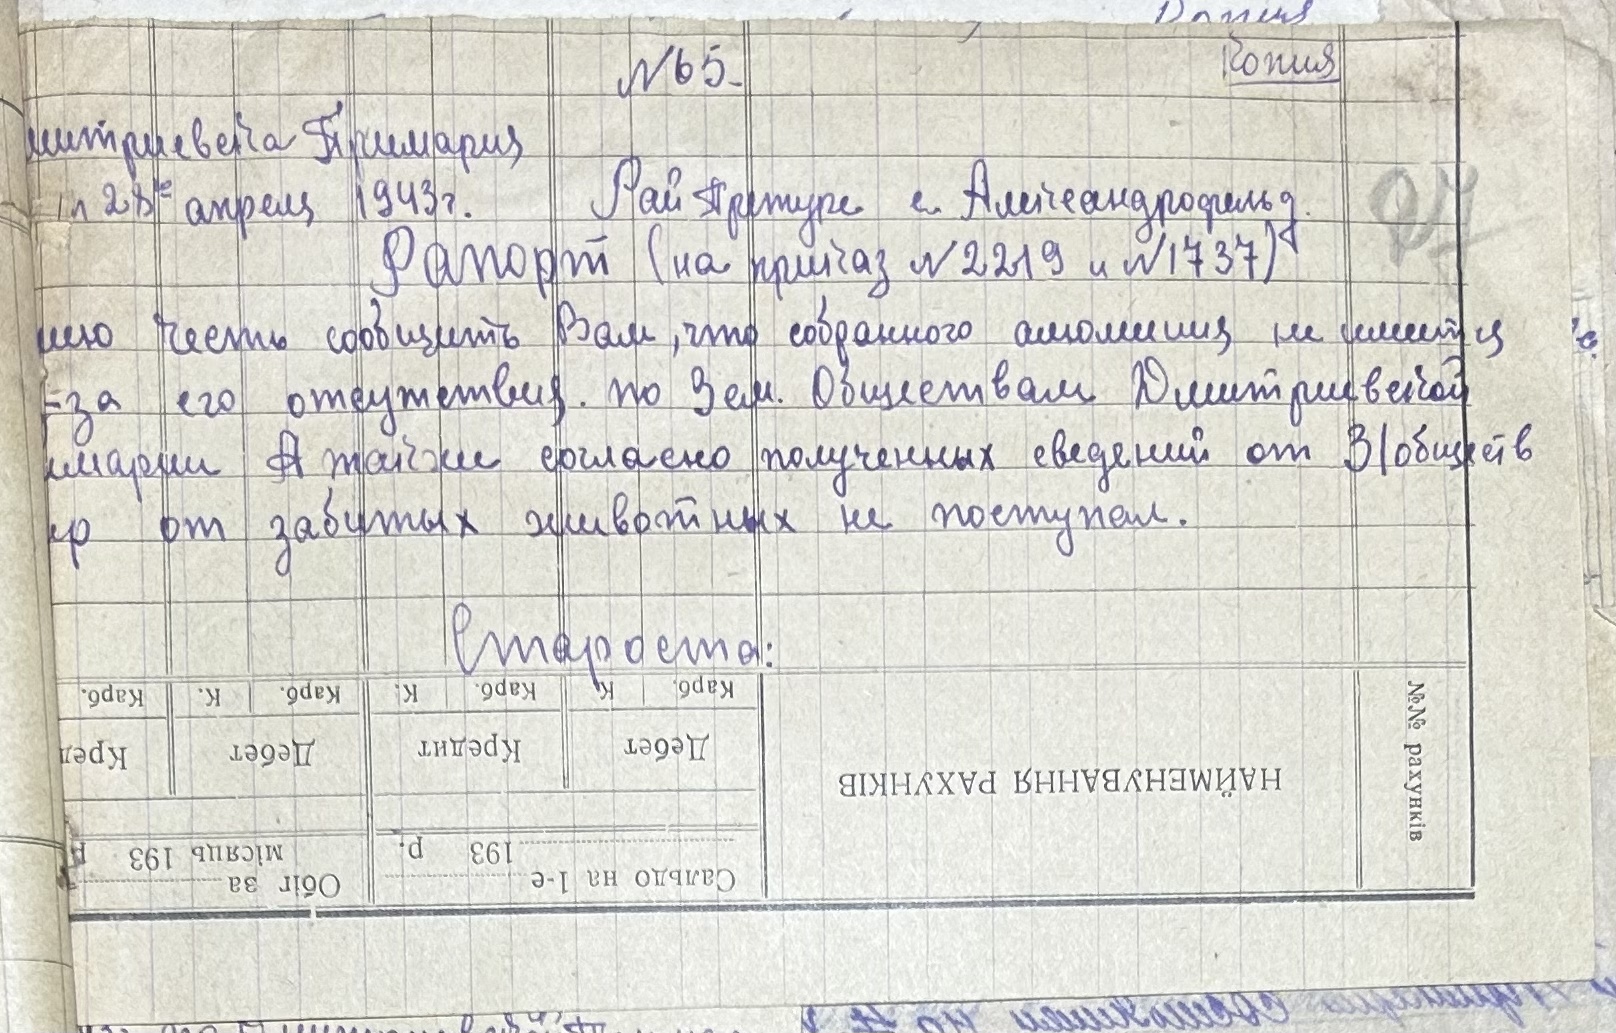 Копия
№65-
митриевска Примария
28го апреля 1943г. Рай Претуре с. Александрофельд.
Рапорт (на приказ №2219 и №1737)
шю честь сообщить Вам, что собранного алюминия не имеется
-за его отсутствия. по Зем. Обществам Дмитриевской
имарии А также согласно полученных сведений от З/обществ
ир от забитых животных не поступал.
Староста:
№№ рахунків
НАЙМЕНУВАННЯ РАХУНКІВ
Сальдо на 1-е
193 р.
Обіг за
місяць 193 р
Дебет Кредит Дебет Кред
Карб. К. Карб. К. Карб. К. Карб.